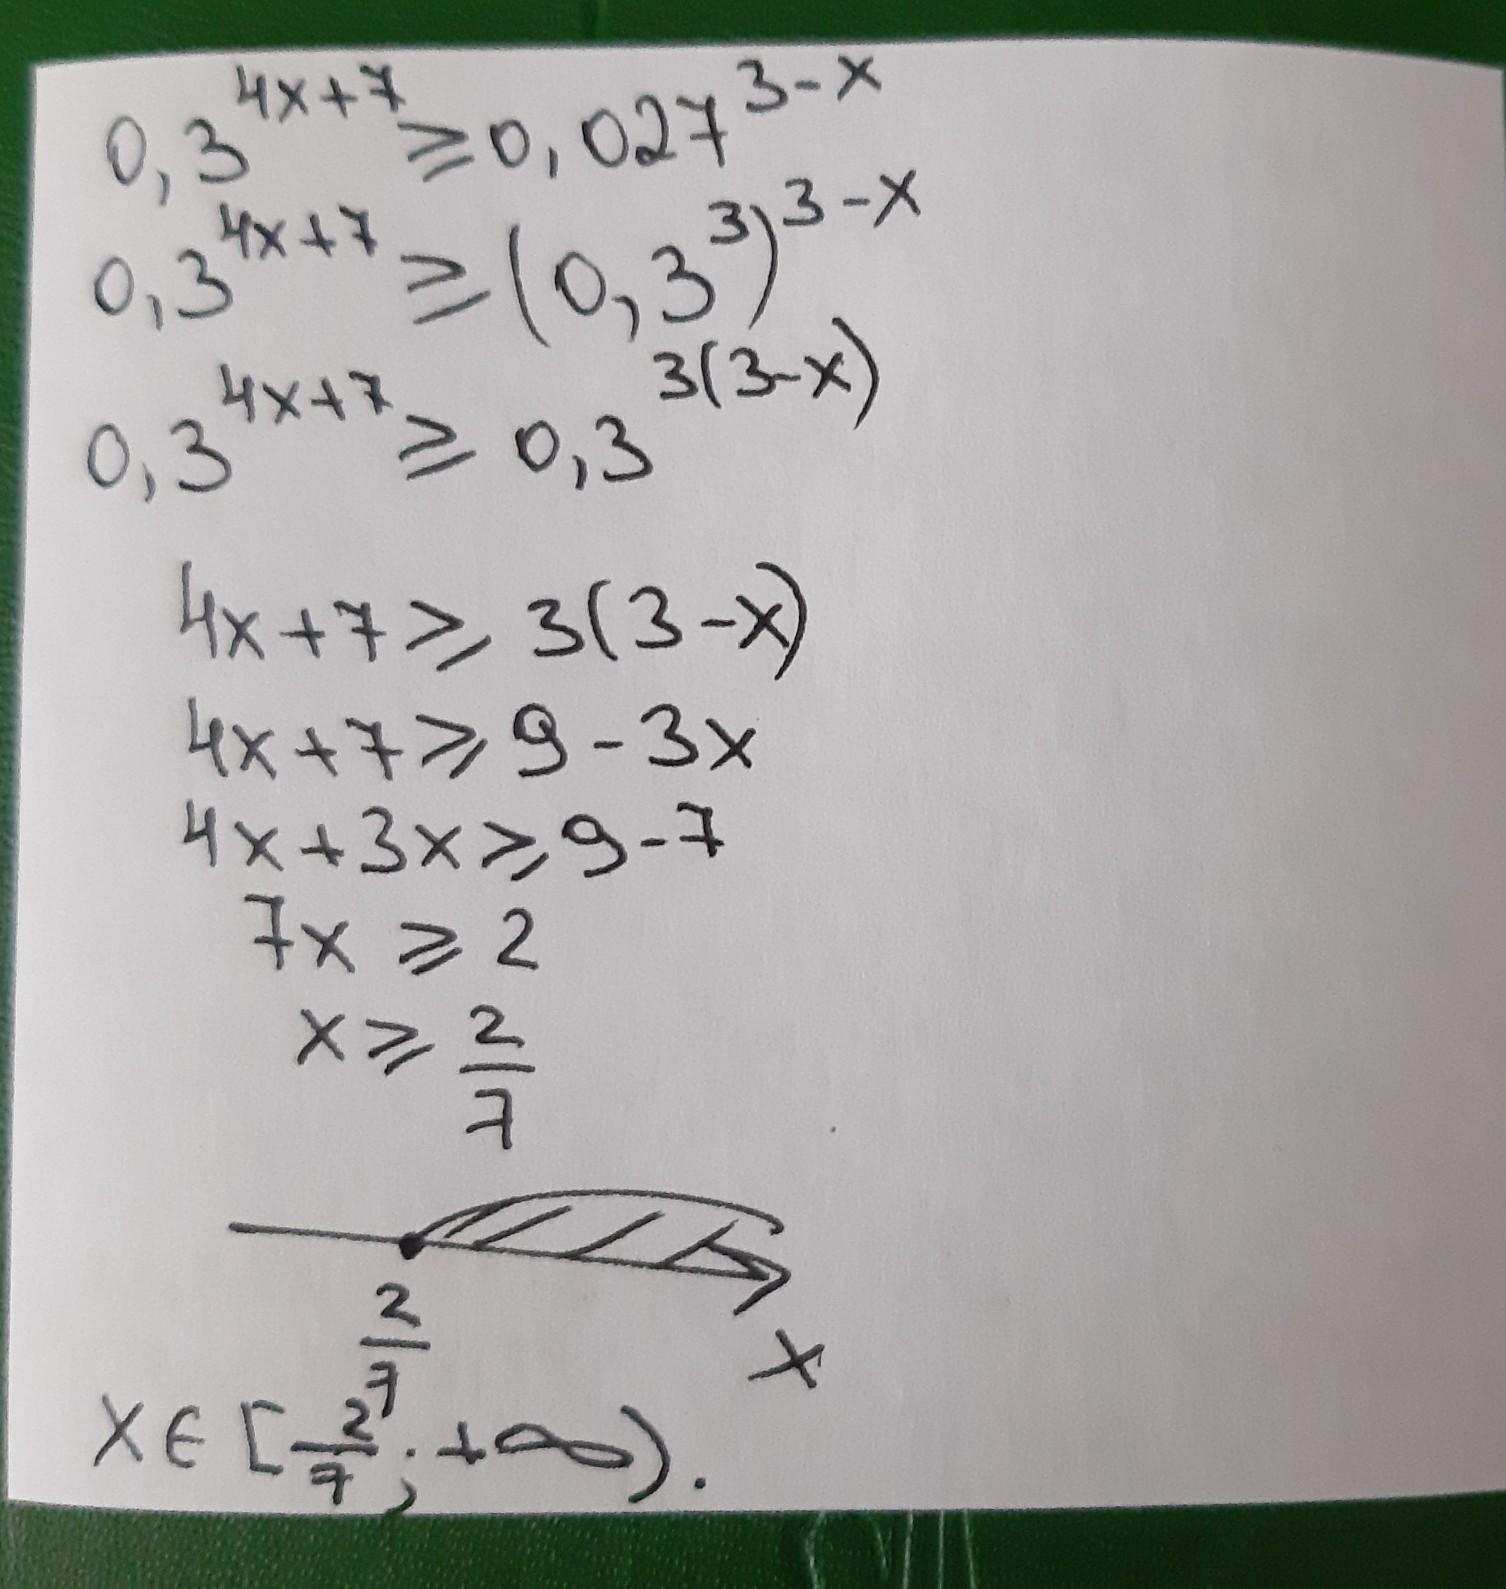 0,3^{4x+7} ⩾ 0,027^{3-x}
0,3^{4x+7} ⩾ (0,3^3)^{3-x}
0,3^{4x+7} ⩾ 0,3^{3(3-x)}
4x+7 ⩾ 3(3-x)
4x+7 ⩾ 9-3x
4x+3x ⩾ 9-7
7x ⩾ 2
x ⩾ \frac{2}{7}
\frac{2}{7}
x
x∈[\frac{2}{7};+∞).